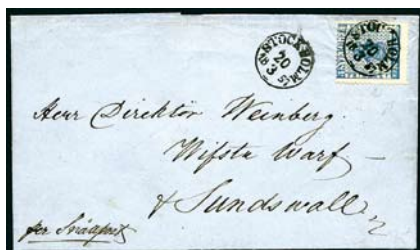 STOCKHOLM
20
3
STOCKHOLM
20
3
Herr Direktör Weinberg.
Wifsta Warf
& Sundswall
per